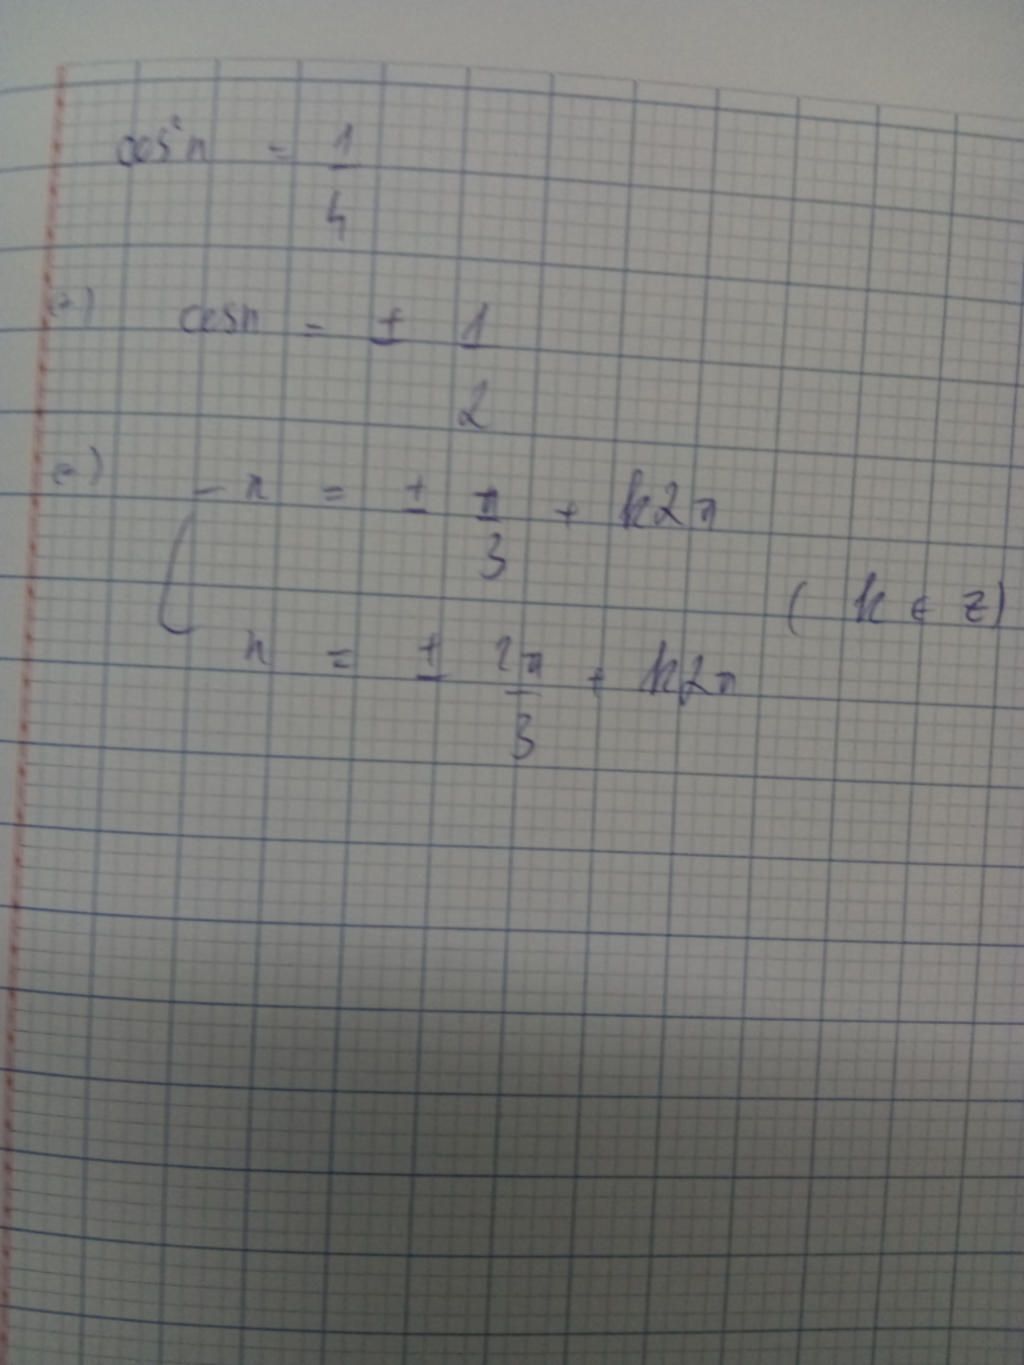 cos²x = 1/4
(=) cosx = ± 1/2
(=) [ x = ± π/3 + k2π
x = ± 2π/3 + k2π (k ∈ Z)